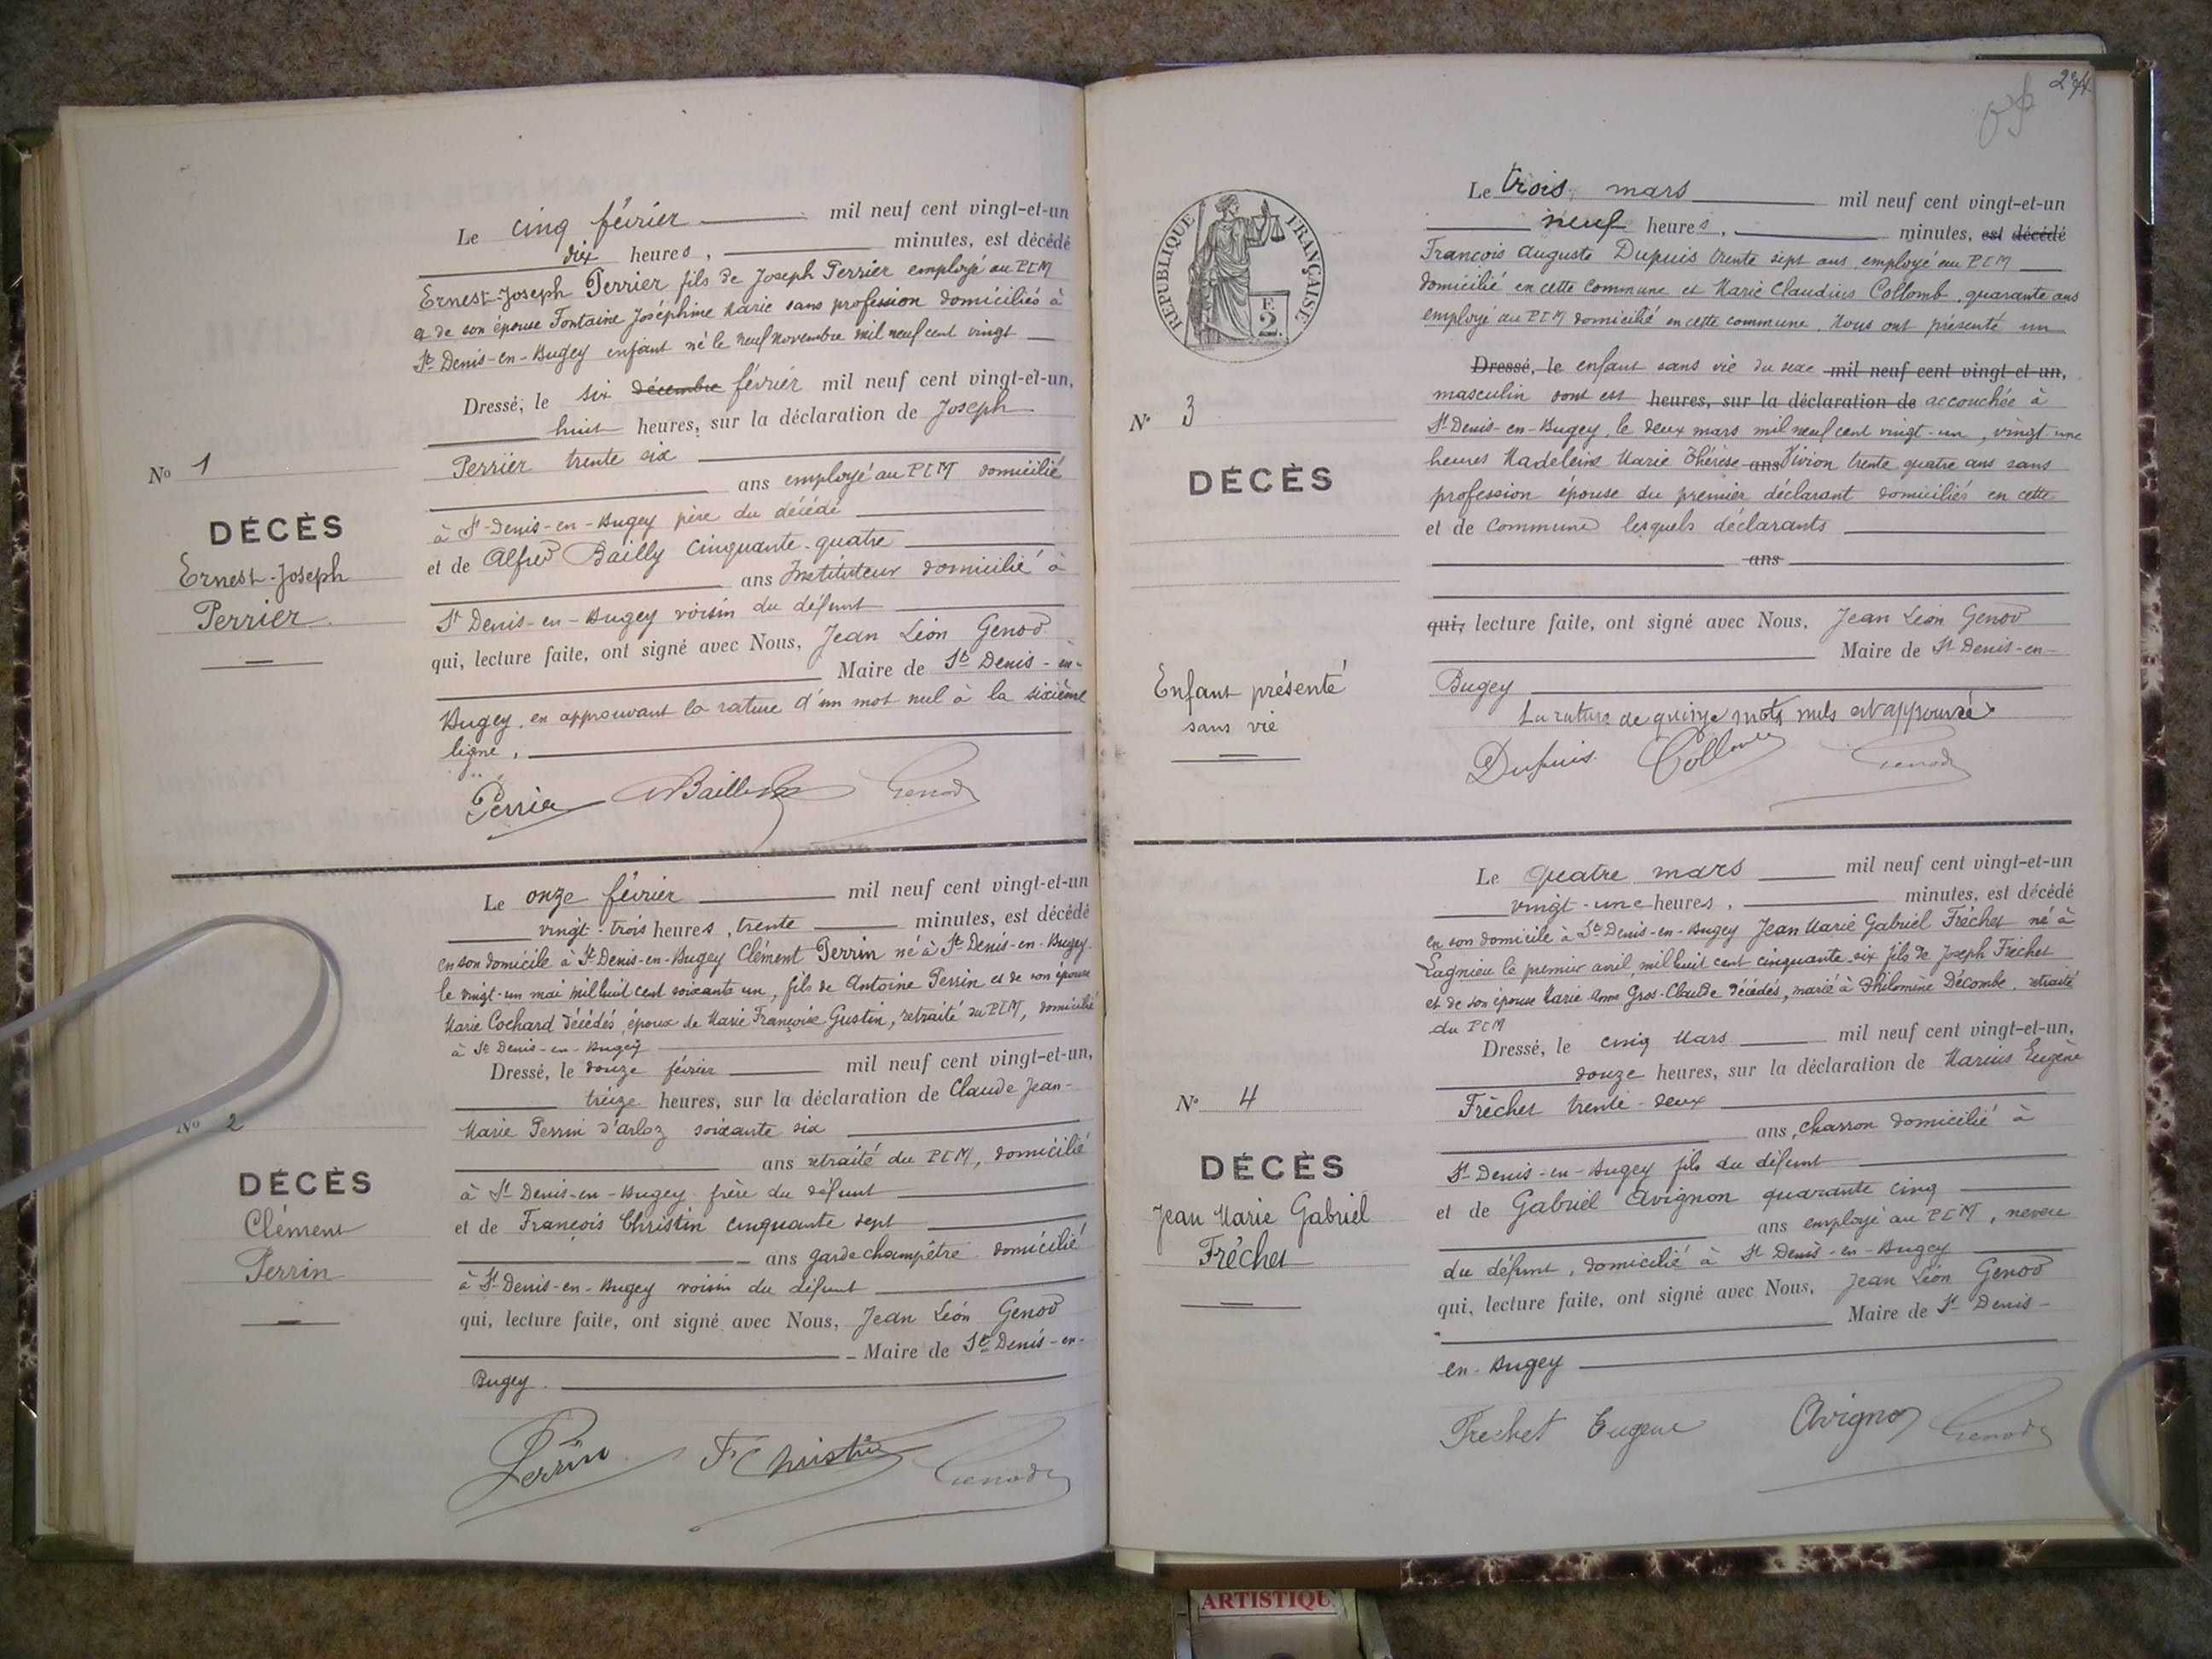 Le cinq février mil neuf cent vingt-et-un
dix heures, minutes, est décédé
Ernest-Joseph Perrier fils de Joseph Perrier employé au PLM
et de son épouse Fontaine Joséphine Marie sans profession domiciliés à
St Denis-en-Bugey enfant né le neuf novembre mil neuf cent vingt
Dressé, le six décembre février mil neuf cent vingt-et-un,
huit heures, sur la déclaration de Joseph
Perrier trente six
ans employé au PLM domicilié
à St-Denis-en-Bugey père du décédé
et de Alfred Bailly cinquante-quatre
ans Instituteur domicilié à
St Denis-en-Bugey voisin du défunt
qui, lecture faite, ont signé avec Nous, Jean Léon Genod
Maire de St Denis-en-
Bugey, en approuvant la rature d'un mot nul à la sixième
ligne,
No 1
DÉCÈS
Ernest-Joseph
Perrier
Perrier Bailly Genod
Le onze février mil neuf cent vingt-et-un
vingt-trois heures, trente minutes, est décédé
en son domicile à St Denis-en-Bugey Clément Perrin né à St Denis-en-Bugey
le vingt-un mai mil huit cent soixante un, fils de Antoine Perrin et de son épouse
Marie Cochard décédés, époux de Marie Françoise Gustin, retraité du PLM, domicilié
à St Denis-en-Bugey
Dressé, le douze février mil neuf cent vingt-et-un,
treize heures, sur la déclaration de Claude Jean-
Marie Perrin d'arloz soixante six
ans retraité du PLM, domicilié
à St Denis-en-Bugey frère du défunt
et de François Christin cinquante sept
ans garde champêtre domicilié
à St-Denis-en-Bugey voisin du défunt
qui, lecture faite, ont signé avec Nous, Jean Léon Genod
Maire de St Denis-en-
Bugey.
No 2
DÉCÈS
Clément
Perrin
Perrin F Christin Genod
RÉPUBLIQUE FRANÇAISE
E
2
Le trois mars mil neuf cent vingt-et-un
neuf heures, minutes, est décédé
François Auguste Dupuis trente sept ans employé au PLM
domicilié en cette commune et Marie Claudius Collomb, quarante ans
employé au PLM domicilié en cette commune. Nous ont présenté un
Dressé, le enfant sans vie du sexe mil neuf cent vingt-et-un,
masculin dont est heures, sur la déclaration de accouchée à
St-Denis-en-Bugey, le deux mars mil neuf cent vingt-un, vingt-une
heures Madeleine Marie Thérèse ans Vivion trente quatre ans sans
profession épouse du premier déclarant domiciliés en cette
et de commune lesquels déclarants
ans
qui, lecture faite, ont signé avec Nous, Jean Léon Genod
Maire de St Denis-en-
Bugey
La rature de quinze mots nuls est approuvée
No 3
DÉCÈS
Enfant présenté
sans vie
Dupuis. Collomb Genod
Le quatre mars mil neuf cent vingt-et-un
vingt-une heures, minutes, est décédé
en son domicile à St Denis-en-Bugey Jean Marie Gabriel Fréchet né à
Lagnieu le premier avril mil huit cent cinquante six fils de Joseph Fréchet
et de son épouse Marie-Anne Gros-Claude décédés, marié à Philomène Décombe, retraité
du PLM
Dressé, le cinq Mars mil neuf cent vingt-et-un,
douze heures, sur la déclaration de Marius Eugène
Fréchet trente-deux
ans, charron domicilié à
St-Denis-en-Bugey fils du défunt
et de Gabriel Avignon quarante cinq
ans employé au PLM, neveu
du défunt, domicilié à St Denis-en-Bugey
qui, lecture faite, ont signé avec Nous, Jean Léon Genod
Maire de St Denis-
en-Bugey
No 4
DÉCÈS
Jean Marie Gabriel
Fréchet
Frechet Eugene Avignon Genod
ARTISTIQU